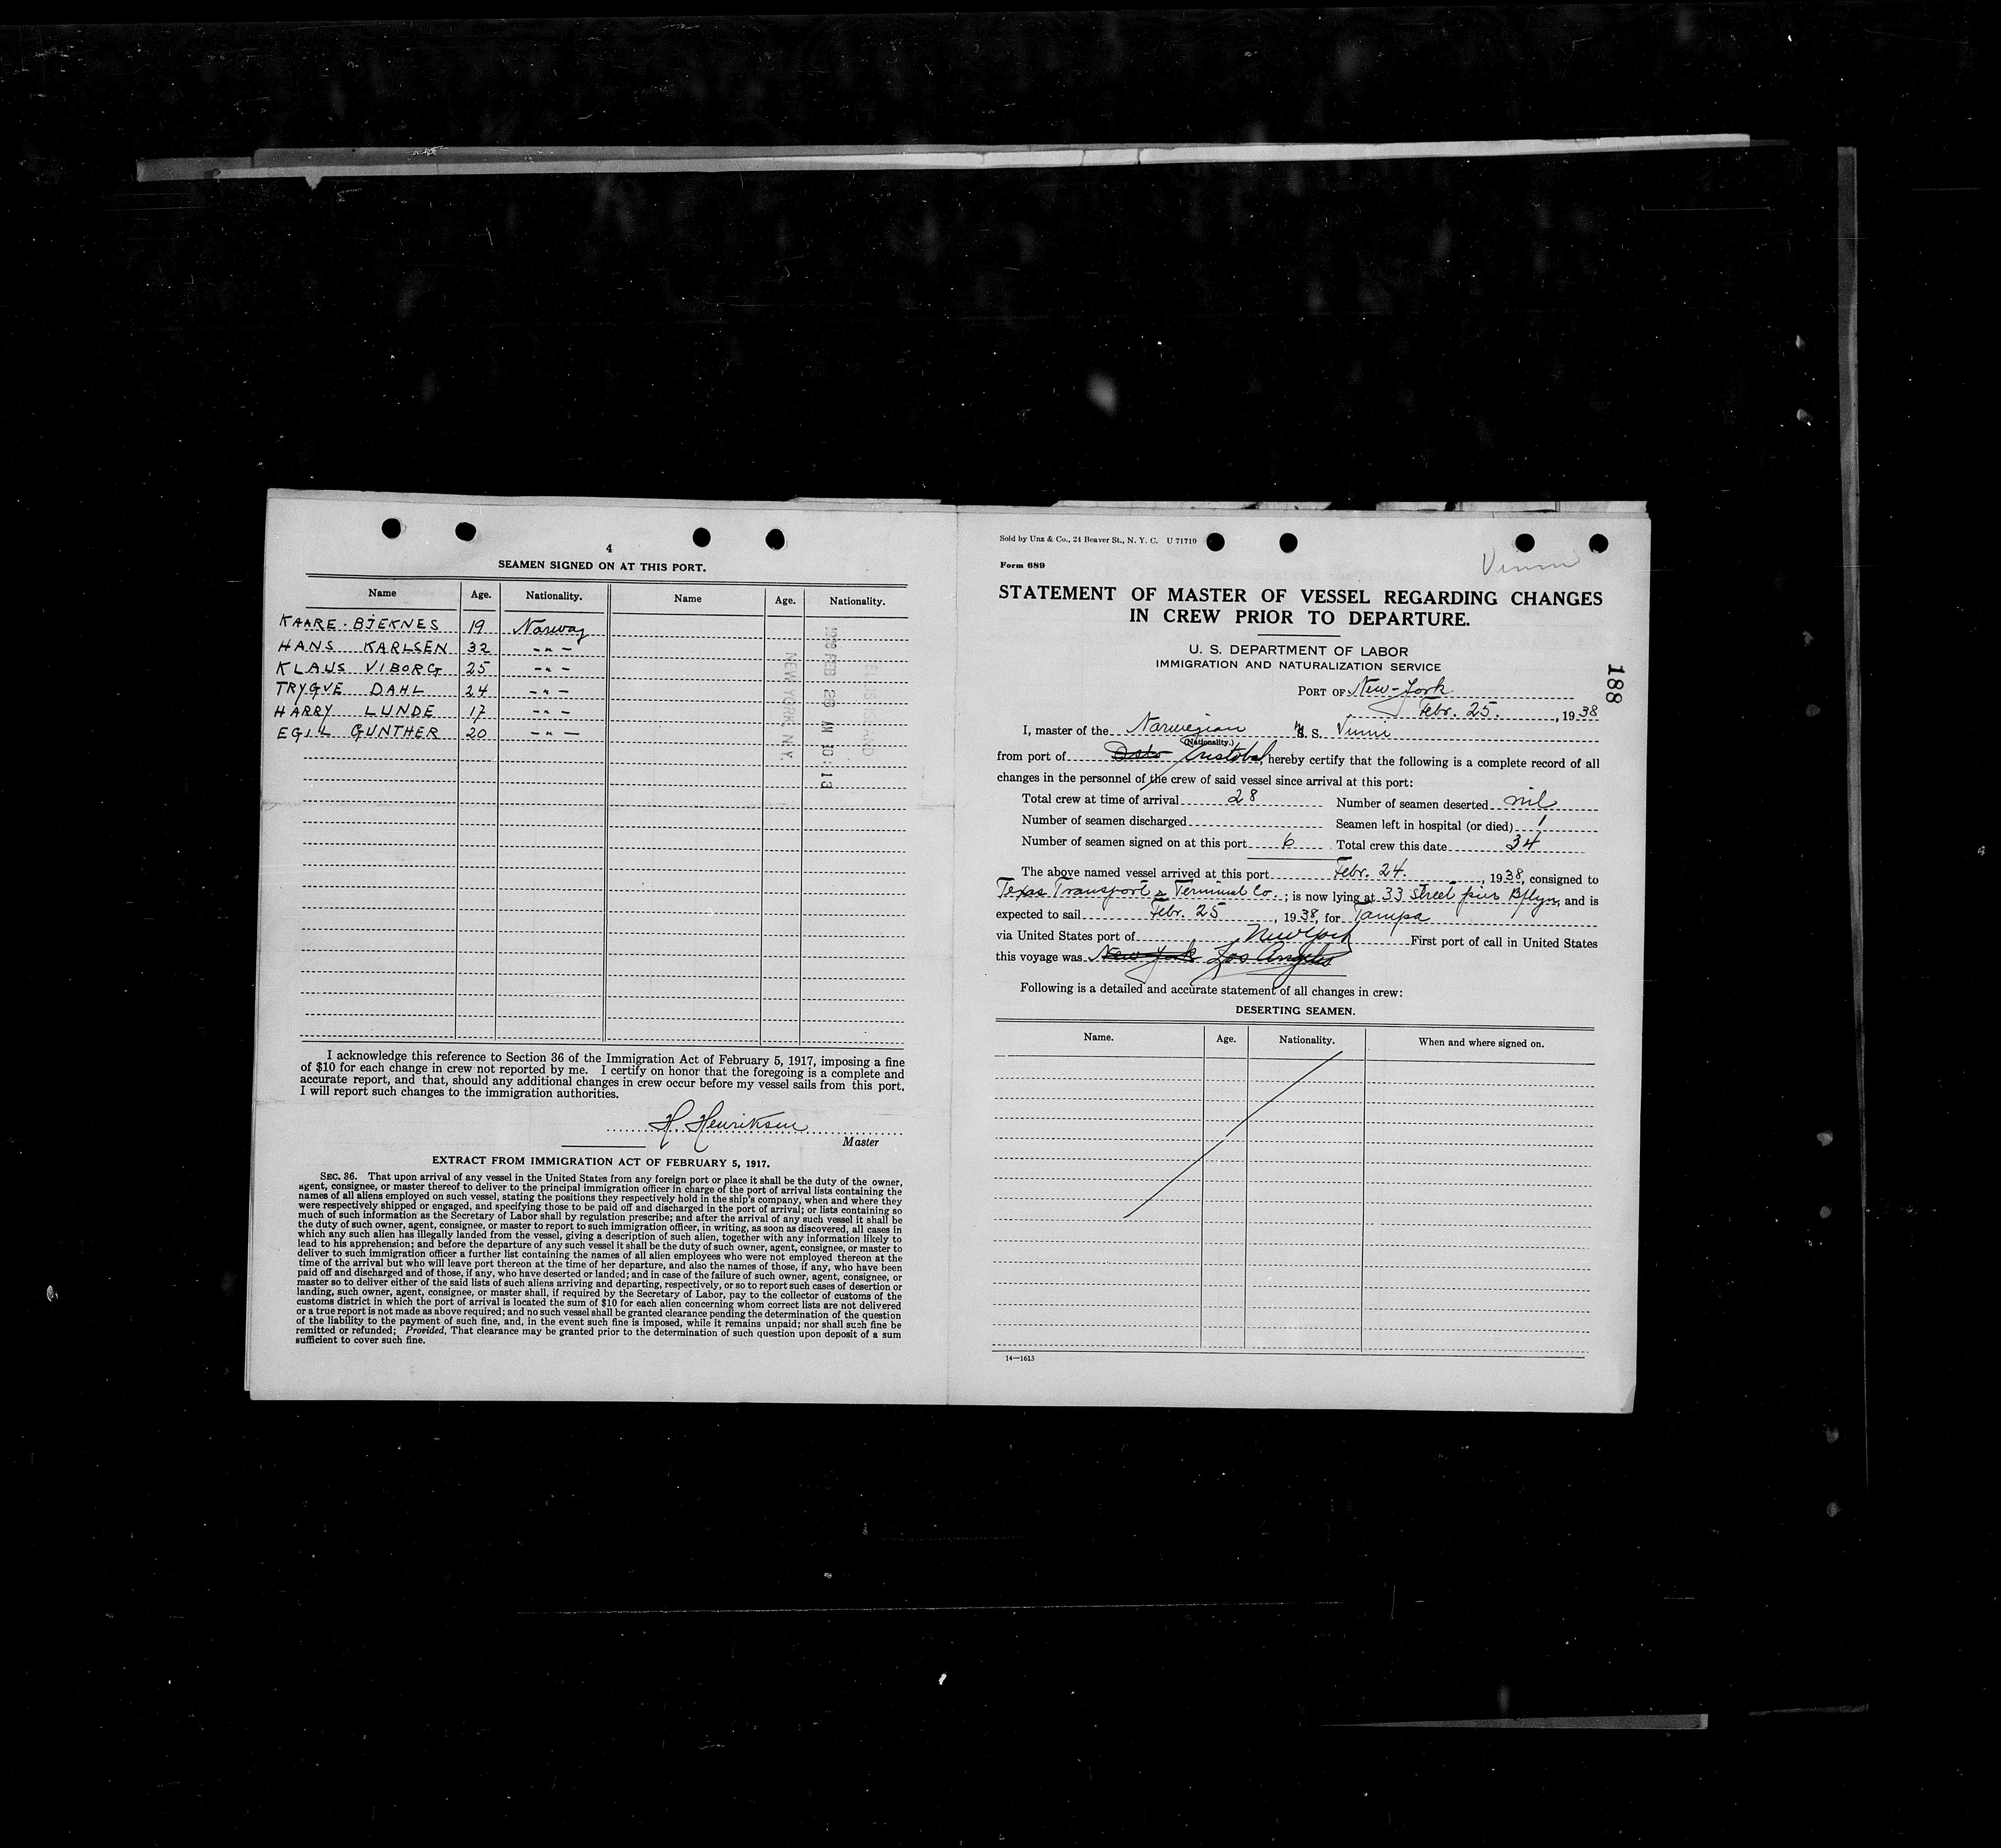 4
SEAMEN SIGNED ON AT THIS PORT.
Name Age. Nationality. Name Age. Nationality.
KAARE BJEKNES 19 Norway
HANS KARLSEN 32 -"-
KLAUS VIBORG 25 -"-
TRYGVE DAHL 24 -"-
HARRY LUNDE 17 -"-
EGIL GUNTHER 20 -"-
ELLIS ISLAND
1938 FEB 26 AM 10:13
NEW YORK, N.Y.
I acknowledge this reference to Section 36 of the Immigration Act of February 5, 1917, imposing a fine
of $10 for each change in crew not reported by me. I certify on honor that the foregoing is a complete and
accurate report, and that, should any additional changes in crew occur before my vessel sails from this port,
I will report such changes to the immigration authorities.
H. Henriksen
Master
EXTRACT FROM IMMIGRATION ACT OF FEBRUARY 5, 1917.
SEC. 36. That upon arrival of any vessel in the United States from any foreign port or place it shall be the duty of the owner,
agent, consignee, or master thereof to deliver to the principal immigration officer in charge of the port of arrival lists containing the
names of all aliens employed on such vessel, stating the positions they respectively hold in the ship's company, when and where they
were respectively shipped or engaged, and specifying those to be paid off and discharged in the port of arrival; or lists containing so
much of such information as the Secretary of Labor shall by regulation prescribe; and after the arrival of any such vessel it shall be
the duty of such owner, agent, consignee, or master to report to such immigration officer, in writing, as soon as discovered, all cases in
which any such alien has illegally landed from the vessel, giving a description of such alien, together with any information likely to
lead to his apprehension; and before the departure of any such vessel it shall be the duty of such owner, agent, consignee, or master to
deliver to such immigration officer a further list containing the names of all alien employees who were not employed thereon at the
time of the arrival but who will leave port thereon at the time of her departure, and also the names of those, if any, who have been
paid off and discharged and of those, if any, who have deserted or landed; and in case of the failure of such owner, agent, consignee, or
master so to deliver either of the said lists of such aliens arriving and departing, respectively, or so to report such cases of desertion or
landing, such owner, agent, consignee, or master shall, if required by the Secretary of Labor, pay to the collector of customs of the
customs district in which the port of arrival is located the sum of $10 for each alien concerning whom correct lists are not delivered
or a true report is not made as above required; and no such vessel shall be granted clearance pending the determination of the question
of the liability to the payment of such fine, and, in the event such fine is imposed, while it remains unpaid; nor shall such fine be
remitted or refunded; Provided, That clearance may be granted prior to the determination of such question upon deposit of a sum
sufficient to cover such fine.
Sold by Unz & Co., 24 Beaver St., N. Y. C. U 71710
Form 689
Vinni
STATEMENT OF MASTER OF VESSEL REGARDING CHANGES
IN CREW PRIOR TO DEPARTURE.
U. S. DEPARTMENT OF LABOR
IMMIGRATION AND NATURALIZATION SERVICE
188
PORT OF New-York
Febr. 25., 1938
I, master of the Norwegian M. S. Vinni
(Nationality.)
from port of Cristobal, hereby certify that the following is a complete record of all
changes in the personnel of the crew of said vessel since arrival at this port:
Total crew at time of arrival 28 Number of seamen deserted nil
Number of seamen discharged Seamen left in hospital (or died) 1
Number of seamen signed on at this port 6 Total crew this date 34
The above named vessel arrived at this port Febr. 24., 1938, consigned to
Texas Transport & Terminal Co.; is now lying at 33 Street pier Bklyn, and is
expected to sail Febr. 25, 1938, for Tampa
via United States port of New York First port of call in United States
this voyage was New York Los Angeles
Following is a detailed and accurate statement of all changes in crew:
DESERTING SEAMEN.
Name. Age. Nationality. When and where signed on.
14—1613